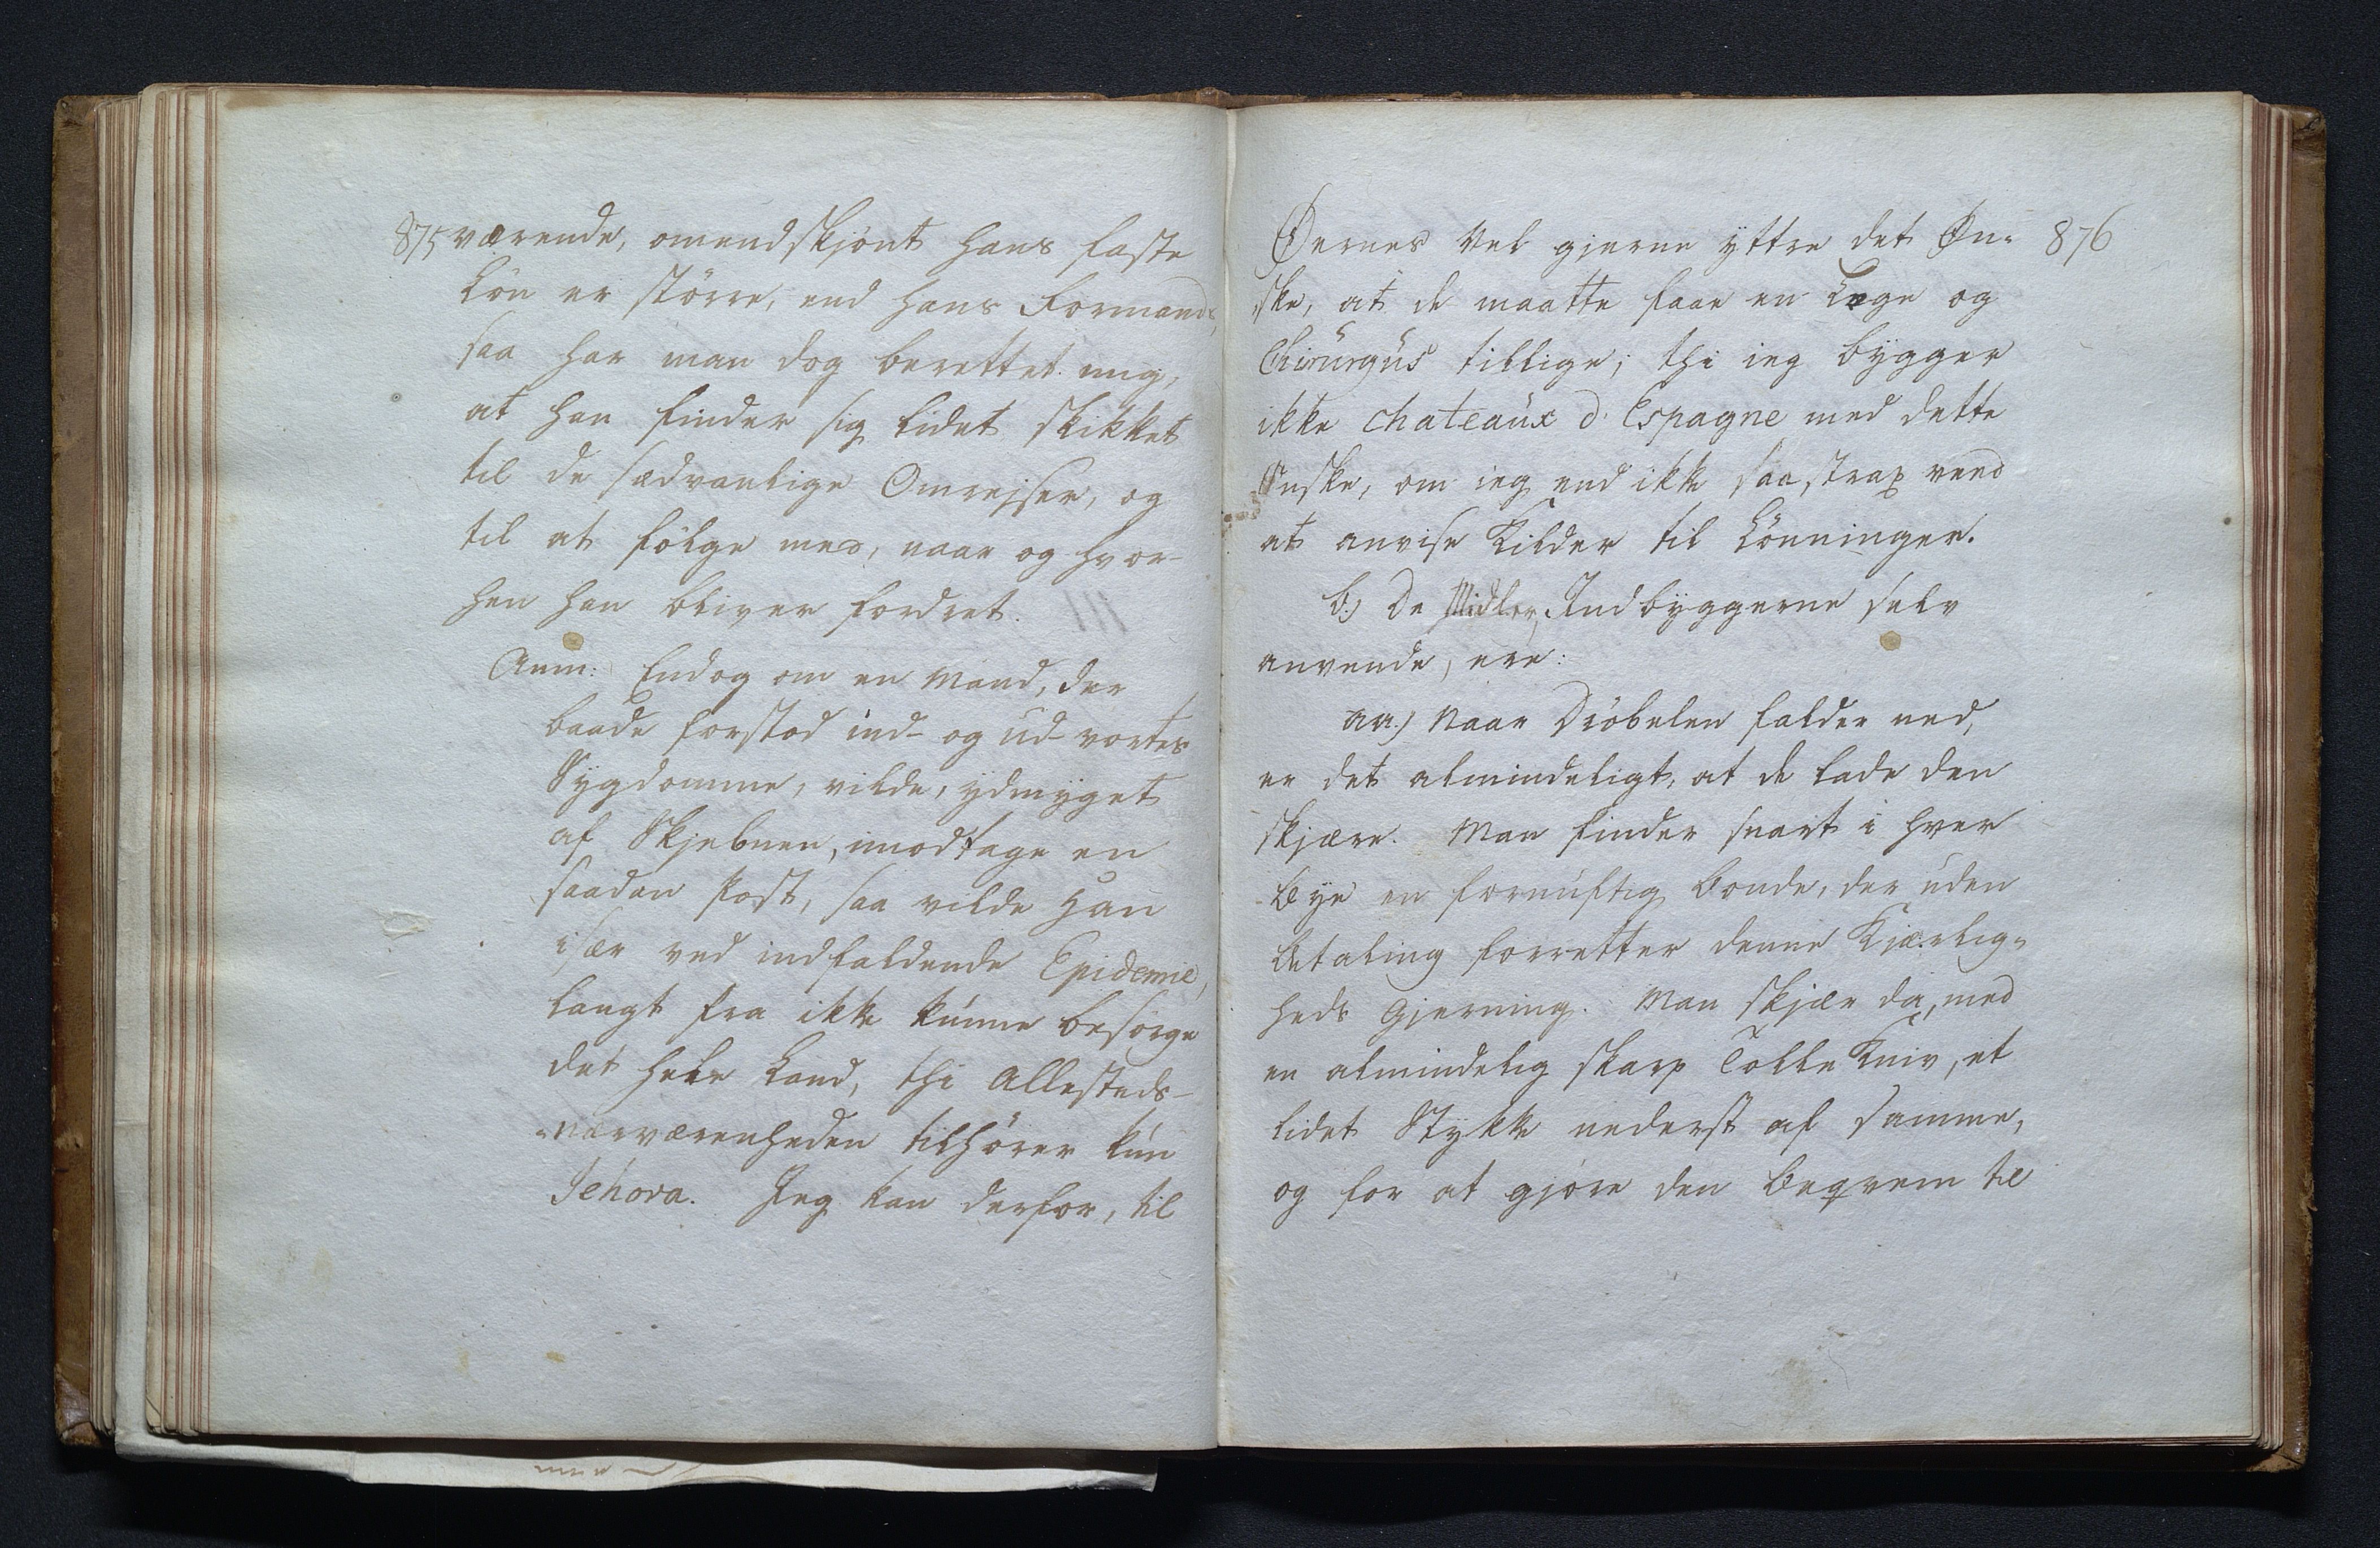 875
værende, omendskjönt hans faste
Lön er större, end hans Formands,
saa har man dog berettet mig,
at han finder sig lidet skikket
til de sædvanlige Omrejser, og
til at fölge med, naar og hvor-
hen han bliver fordret.
Anm: Endog om en Mand, der
baade forstod ind- og ud-vortes
Sygdomme, vilde, ydmyget
af Skjebnen, imodtage en
saadan Post, saa vilde Han
især ved indfaldende Epidemie,
langt fra ikke kunne besörge
det hele Land, thi Allesteds-
-nærværenheden tilhörer kun
Jehova. Jeg kan derfor, til
876
Øernes Vel gjerne yttre det Øn-
ske, at de maatte faae en Læge og
Chirurgus tillige; thi ieg bygger
ikke chateaux d'Espagne med dette
Ønske, om ieg end ikke saa strax veed
at anvise Kilder til Lönninger.
b.) De Midler, Indbyggerne selv
anvende, ere:
aa.) Naar Dröbelen falder ned,
er det almindeligt, at de lade den
skjære. Man finder snart i hver
Bye en fornuftig Bonde, der uden
Betaling forretter denne Kjærlig-
heds Gjerning. Man skjær da, med
en almindelig skarp Tolle Kniv, et
lidet Stykke nederst af samme,
og for at gjöre den beqvem til